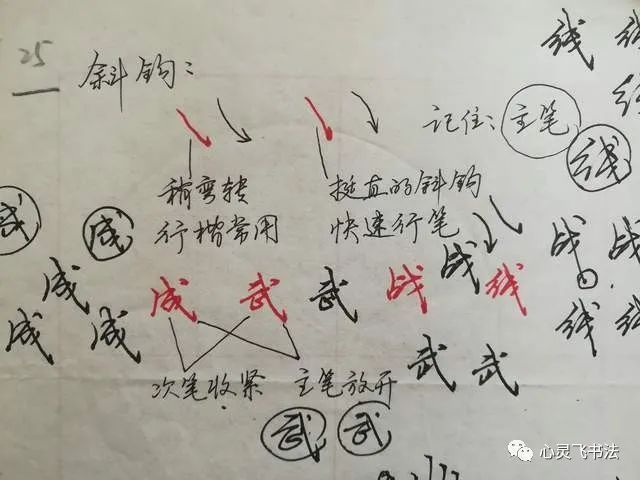 25
斜钩：
记住：主笔
线 线
线
稍弯转
行楷常用
挺直的斜钩
快速行笔
成 成
成 成 武 武 战 战 线 战 战
成 成 武 武 线 线
次笔收紧 主笔放开
武 武
心灵飞书法